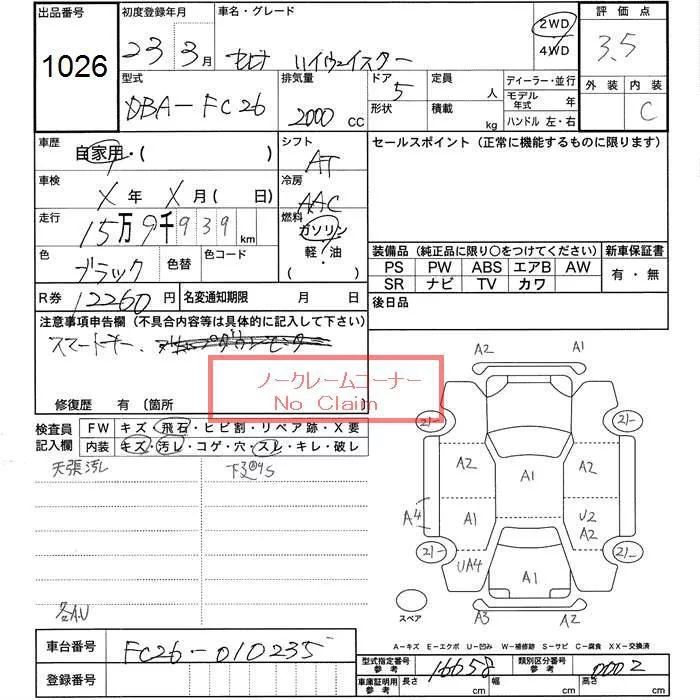 出品番号
1026
初度登録年月
23 3月
車名・グレード
セレナ ハイウェイスター
2WD
4WD
評価点
3.5
型式
DBA-FC26
排気量
2000 cc
ドア
5
形状
定員
人
積載
kg
ディーラー・並行
モデル年式
年
ハンドル 左・右
外装
内装
C
車歴
自家用・( )
シフト
AT
セールスポイント(正常に機能するものに限ります)
車検
X年 X月( 日)
冷房
AAC
走行
15万9千939 km
燃料
ガソリン
軽・油
( )
色
ブラック
色替
色コード
装備品(純正品に限り○をつけてください)
新車保証書
PS PW ABS エアB AW
SR ナビ TV カワ
有・無
R券 12260円
名変通知期限 月 日
後日品
注意事項申告欄(不具合内容等は具体的に記入して下さい)
スマートキー、
ノークレームコーナー
No Claim
修復歴 有(箇所
検査員記入欄
FW キズ・飛石・ヒビ割・リペア跡・X要
内装 キズ・汚レ・コゲ・穴・スレ・キレ・破レ
天張汚レ
各A.U
A2 A1
21- 21-
A2 A1 A2
A4 A1 U2
A2
21- 21-
UA4 A1
A3 A2
スペア
A-キズ E-エクボ U-凹み W-補修跡 S-サビ C-腐食 XX-交換済
車台番号
FC26-010235
登録番号
型式指定番号 参考
16658
類別区分番号 参考
0002
車庫証明用 参考
長さ cm
幅 cm
高さ cm